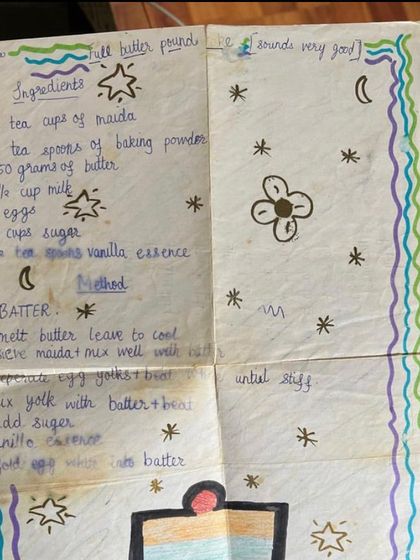 Full butter pound [sounds very good]
Ingredients
tea cups of maida
tea spoons of baking powder
50 grams of butter
cup milk
eggs
cups sugar
tea spoons vanilla essence
Method
BATTER.
melt butter leave to cool
sieve maida + mix well with batter
seperate egg yolks + beat until stiff
mix yolk with batter + beat
add suger
vanilla essence
fold egg white into batter